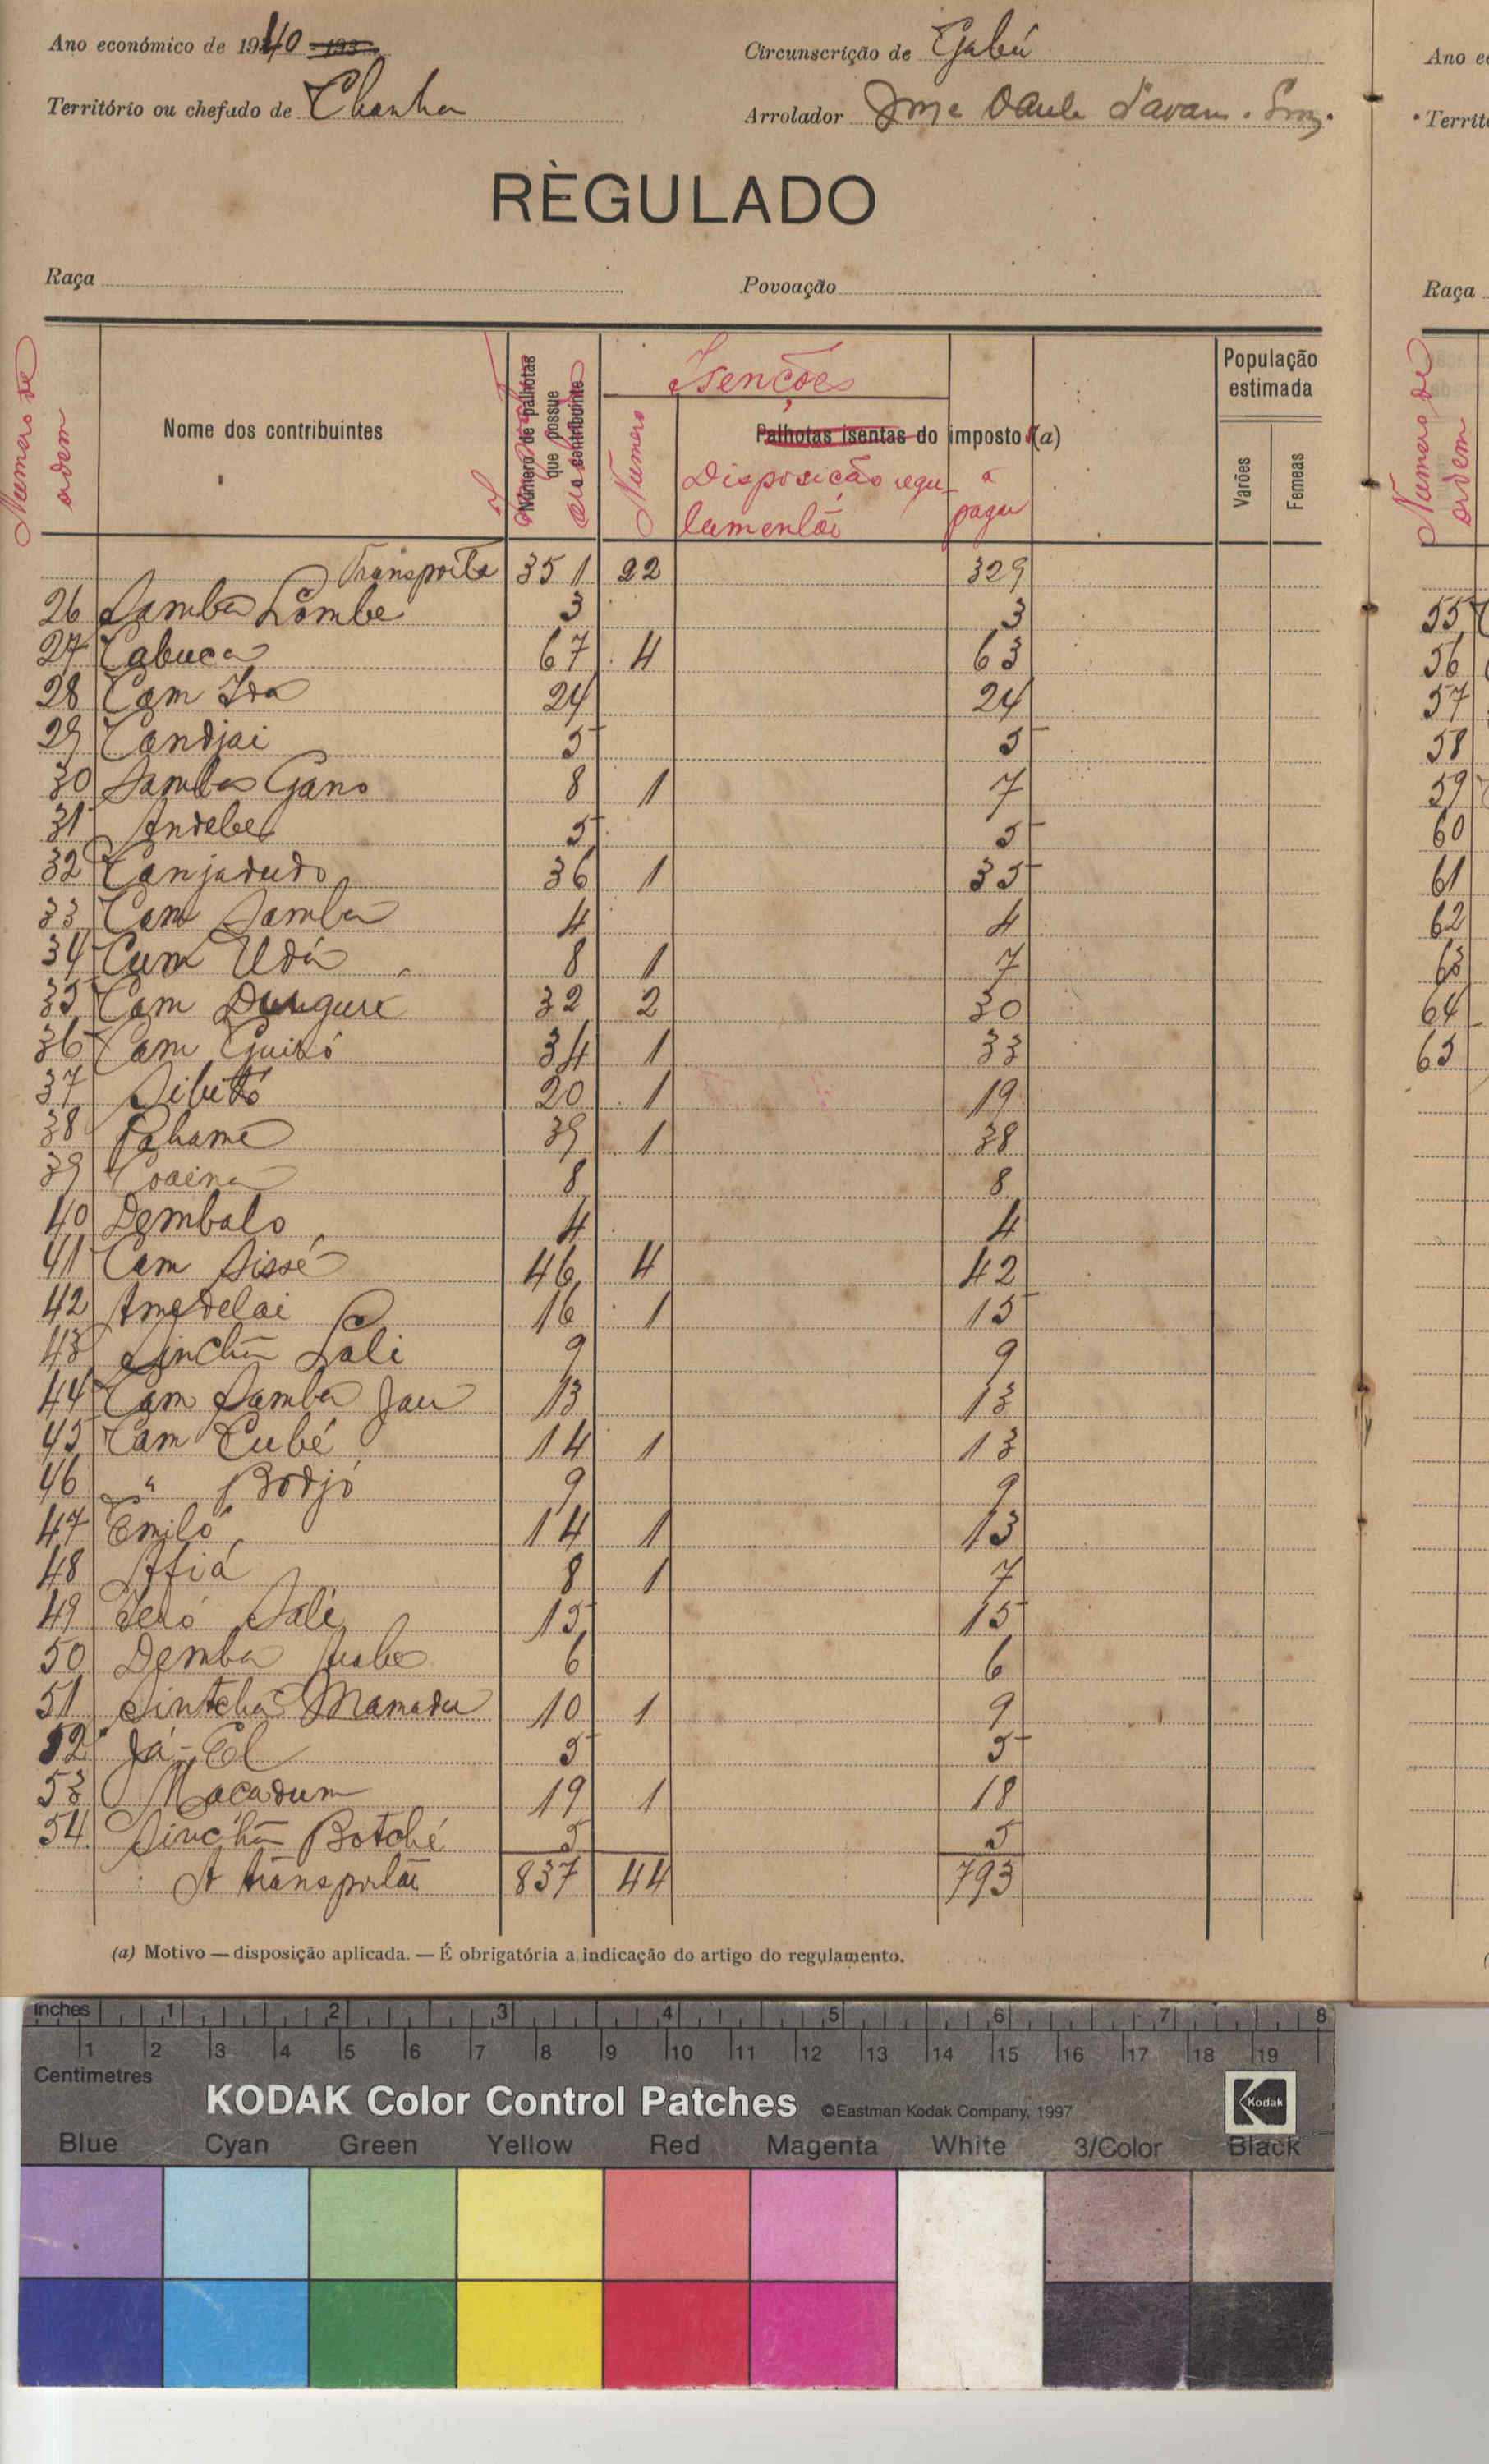 Ano económico de 1940
Circunscrição de Gabú
Território ou chefado de Chanha
Arrolador
RÈGULADO
Raça
Povoação
Numero de ordem
Nome dos contribuintes
Número de palhotas que possue o contribuinte
Isenções
Numero
Palhotas isentas do imposto (a)
Disposição regulamentar
a pagar
População estimada
Varões
Femeas
Transporte 351 22 329
26 Samba Lombe 3 3
27 Cabuca 67 4 63
28 Cam Iда 24 24
29 Candjai 5 5
30 Samba Gano 8 1 7
31 Andebel 5 5
32 Canjadudo 36 1 35
33 Cam Samba 4 4
34 Cam Udi 8 1 7
35 Cam Dungure 32 2 30
36 Cam Guiró 34 1 33
37 Sibitó 20 1 19
38 Pahame 39 1 38
39 Coaina 8 8
40 Dembalo 4 4
41 Cam Sissé 46 4 42
42 Amedelai 16 1 15
43 Sinchã Lali 9 9
44 Cam Samba Jau 13 13
45 Cam Cubé 14 1 13
46 " Bodjó 9 9
47 Emiló 14 1 13
48 Afiá 8 1 7
49 Seró Sali 15 15
50 Demba 6 6
51 Sintchã Mamadu 10 1 9
52 Já-El 5 5
53 Macadum 19 1 18
54 Sinchã Botché 5 5
A transportar 837 44 793
(a) Motivo — disposição aplicada. — É obrigatória a indicação do artigo do regulamento.
Ano e
Territ
Raça
Numero de ordem
55
56
57
58
59
60
61
62
63
64
65
inches 1 2 3 4 5 6 7 8
1 2 3 4 5 6 7 8 9 10 11 12 13 14 15 16 17 18 19
Centimetres
KODAK Color Control Patches ©Eastman Kodak Company, 1997 Kodak
Blue Cyan Green Yellow Red Magenta White 3/Color Black